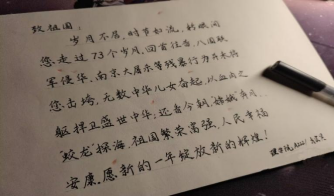 致祖国:
岁月不居,时节如流,转眼间
您走过73个岁月,回首往昔,八国联
军侵华,南京大屠杀等残暴行为并未将
您击垮,无数中华儿女奋起,以血肉之
躯捍卫盛世中华,近看今朝,"嫦娥"奔月,
"蛟龙"探海,祖国繁荣富强,人民幸福
安康,愿新的一年绽放新的辉煌!
理学院